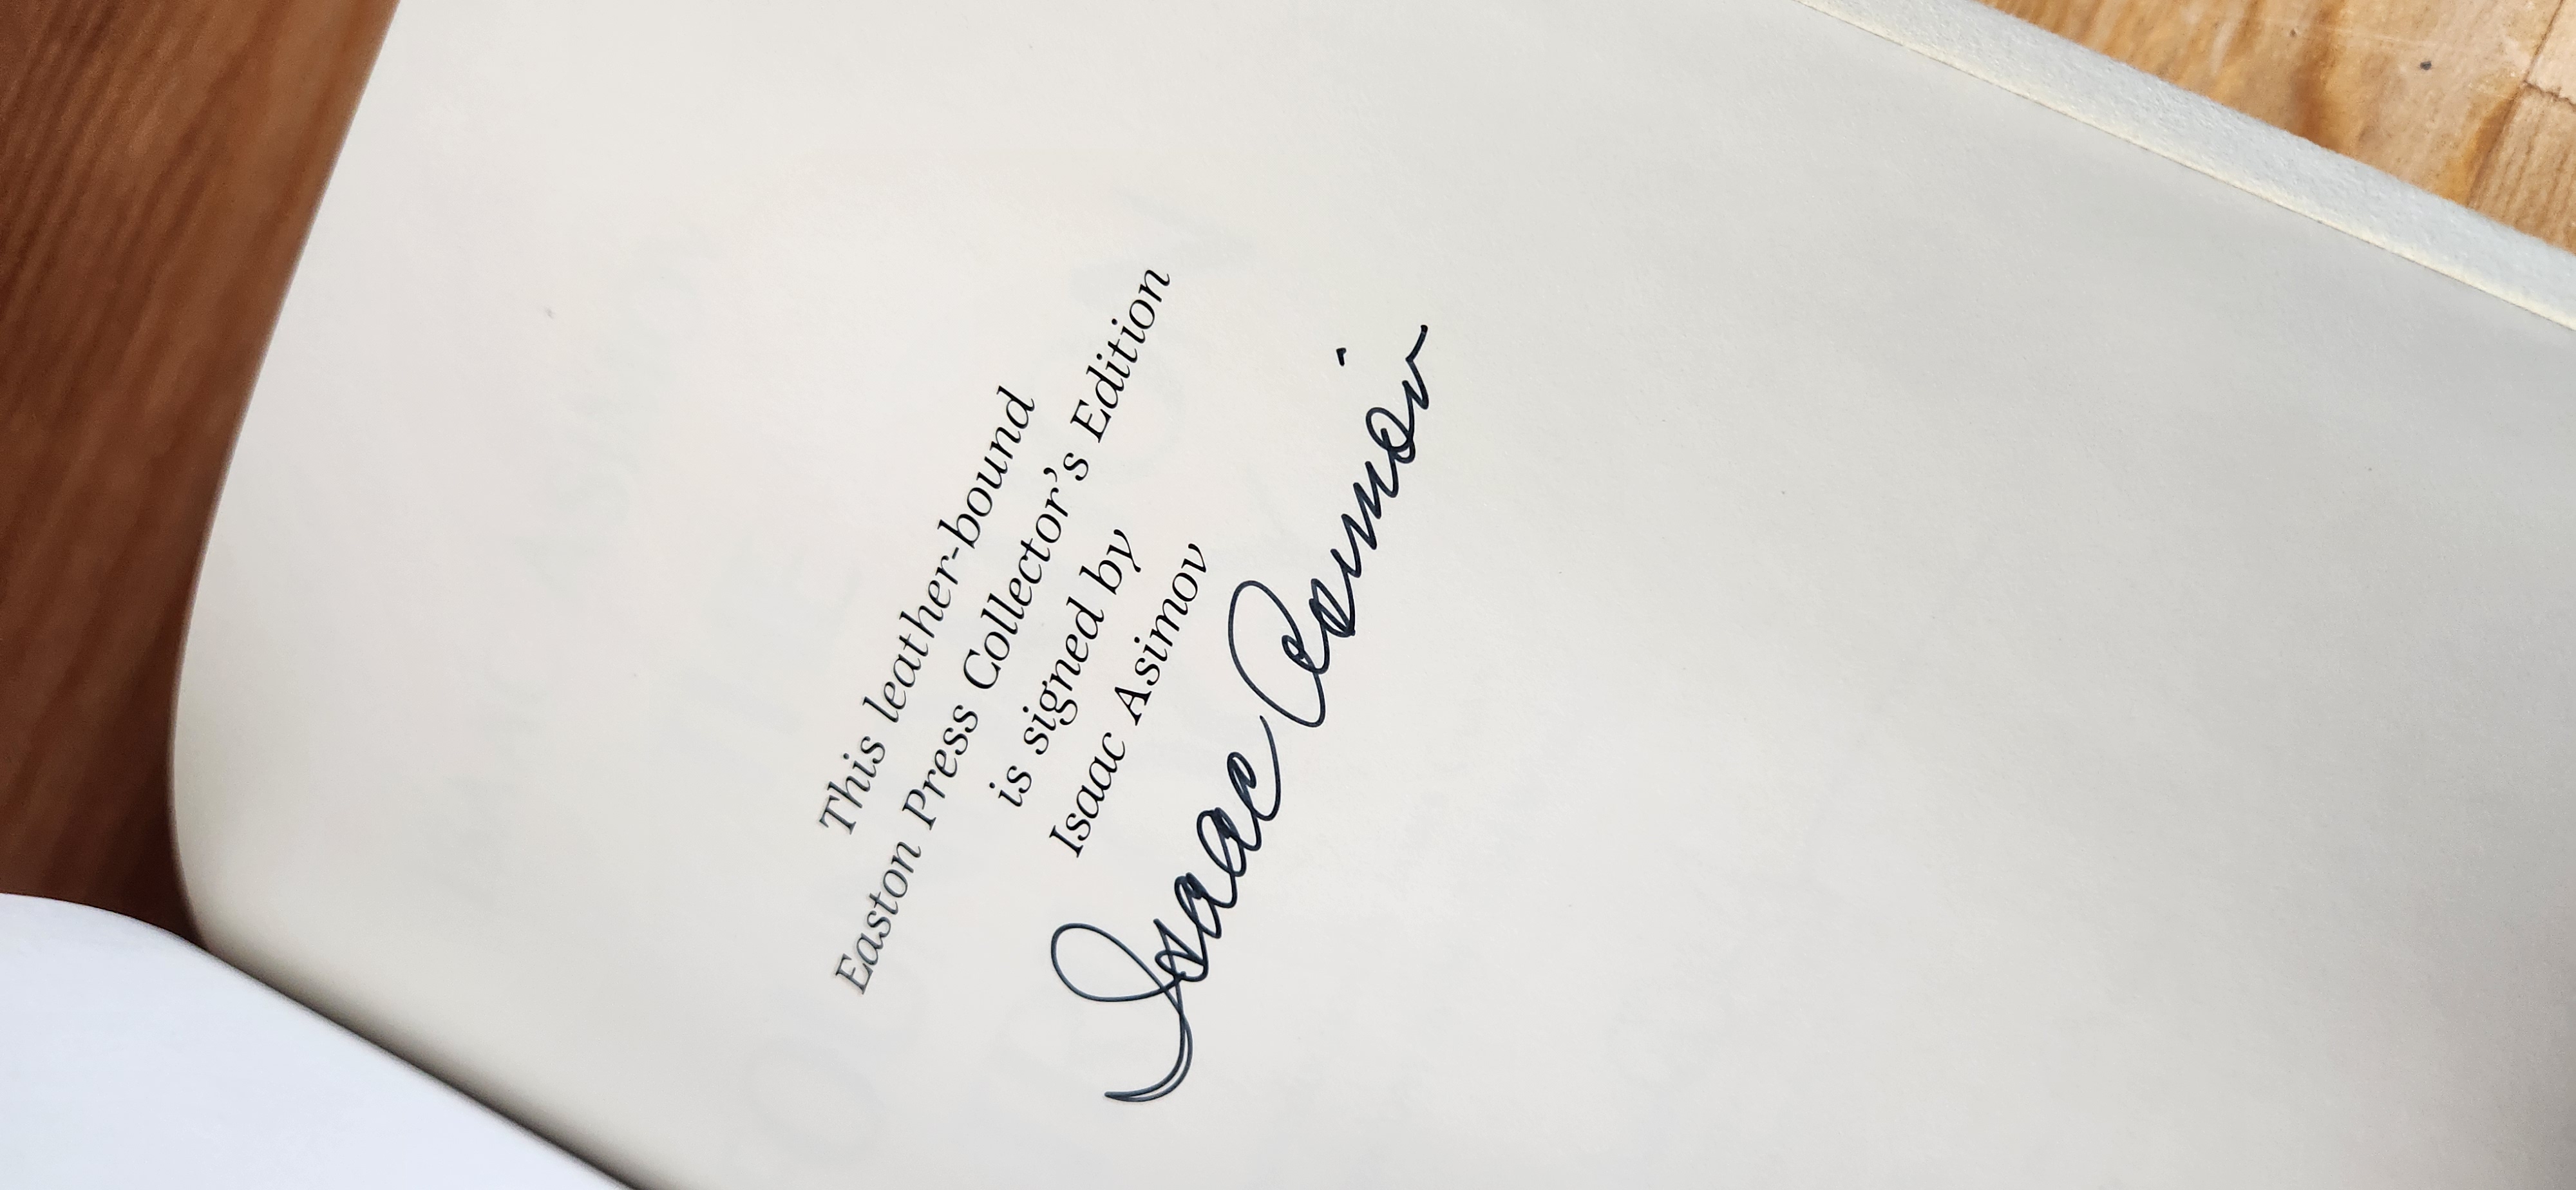 This leather-bound
Easton Press Collector's Edition
is signed by
Isaac Asimov
Isaac Asimov